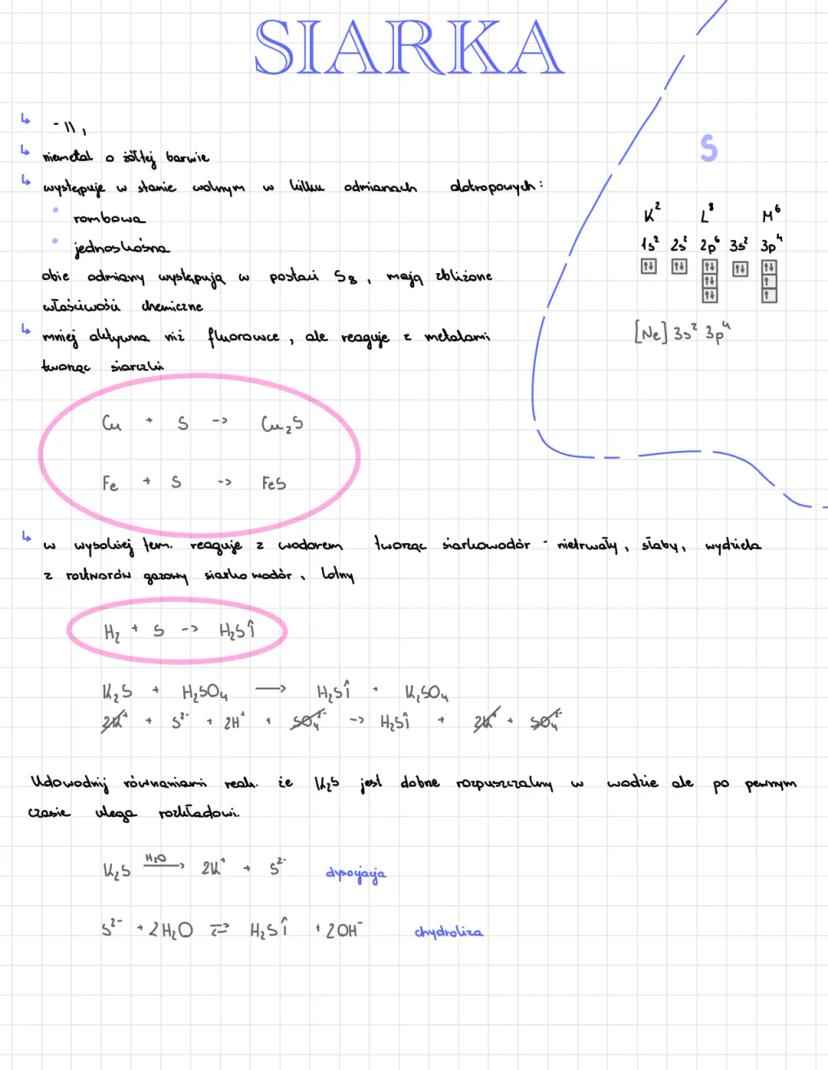 SIARKA
↳ -II,
↳ niemetal o żółtej barwie
↳ występuje w stanie wolnym w kilku odmianach alotropowych:
• rombowa
• jednoskośna
obie odmiany występują w postaci S₈, mają zbliżone
właściwości chemiczne
↳ mniej aktywna niż fluorowce, ale reaguje z metalami
tworząc siarczki
Cu + S -> Cu₂S
Fe + S -> FeS
↳ w wysokiej tem. reaguje z wodorem tworząc siarkowodór - nietrwały, słaby, wydziela
z roztworów gazowy siarkowodór, lotny
H₂ + S -> H₂S↑
K₂S + H₂SO₄ → H₂S↑ + K₂SO₄
2K⁺ + S²⁻ + 2H⁺ + SO₄²⁻ -> H₂S↑ + 2K⁺ + SO₄²⁻
Udowodnij równaniami reak. że K₂S jest dobrze rozpuszczalny w wodzie ale po pewnym
czasie ulega rozkładowi.
K₂S H₂O→ 2K⁺ + S²⁻ dysocjacja
S²⁻ + 2H₂O ⇄ H₂S↑ + 2OH⁻ chydroliza
S
K² L⁸ M⁶
1s² 2s² 2p⁶ 3s² 3p⁴
[Ne] 3s² 3p⁴